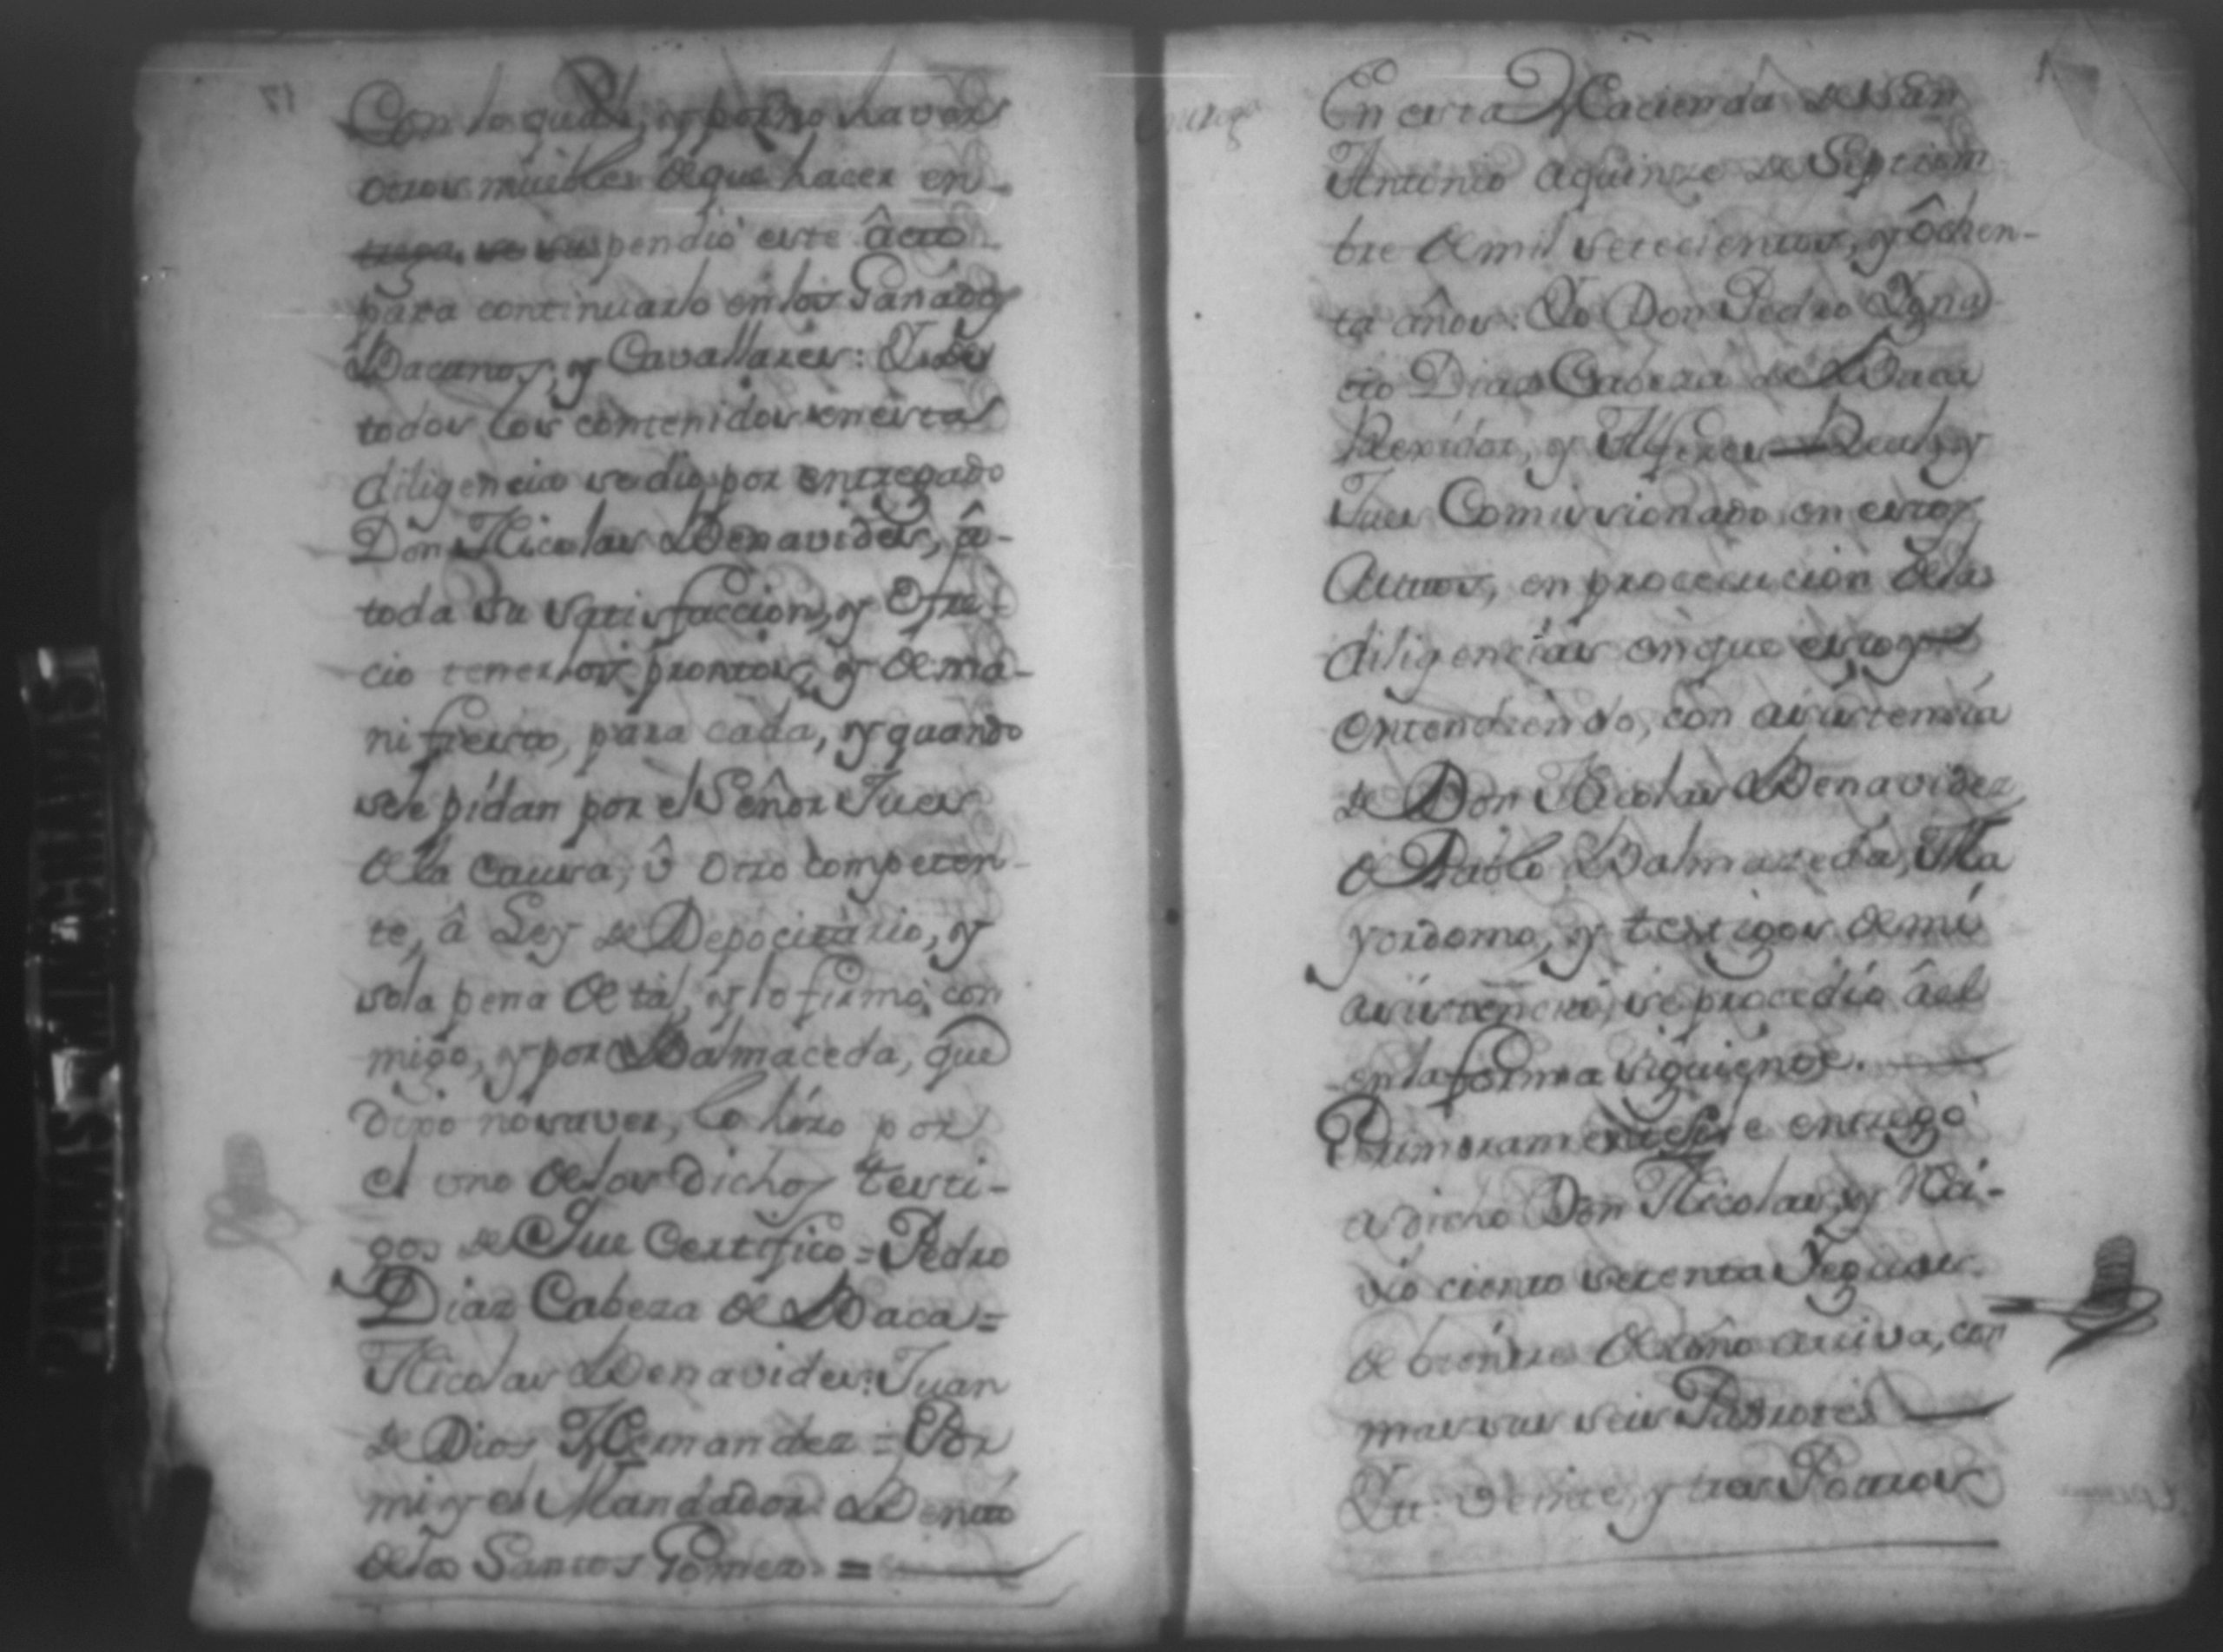 Con lo qual, y por no haver
otros muebles de que hacer en-
trega, se suspendió este âcto
para continuarlo en los Ganados
Bacunos, y Cavallares: Y de
todos los contenidos en esta
diligencia se dio por entregado
Don Nicolas Benavides, â
toda su satisfaccion, y Ofre-
cio tenerlos prontos, y de ma-
nifiesto, para cada, y quando
se le pidan por el Señor Jues
de la causa, û otro competen-
te, â Ley de Depocitario, y
so la pena de tal, y lo firmó con
migo, y por Balmaceda, que
dixo no saver, lo hizo por
el uno de los dichos testi-
gos de Que Certifico = Pedro
Diaz Cabeza de Baca =
Nicolas Benavides: Juan
de Dios Hernandez = Por
mi y el Mandador Benito
de los Santos Gomez. =
En esta Hacienda de San
Antonio a quinze de Septiem-
bre de mil setecientos, y ôchen-
ta âños: Yo Don Pedro Ygna
cio Dias Cabeza de Baca
Rexidor, y Alferes Real, y
Jues Comissionado en estos
Autos, en procecucion de las
diligencias en que estoy
entendiendo, con asistencia
de Don Nicolas Benavidez
de Pablo Balmazeda, Ma
yordomo, y testigos de mi
asistencia, se procedió âel
en la forma siguiente.
Primeramente se entregó
a dicho Don Nicolas, y Reci-
vio ciento setenta Yeguas
de bientre de âño arriva, con
mas sus seis Pastores
Ytt. veinte, y tres Potros